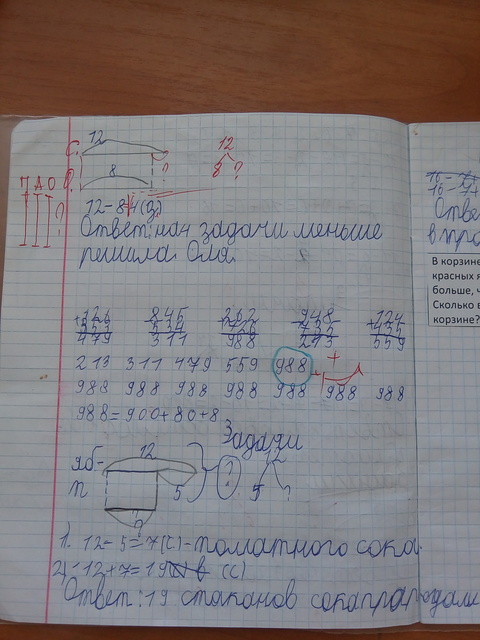 12
С.
12
8 ?
О.
8
?
П А О
?
12-8=4(з)
Ответ: на 4 задачи меньше
решила Оля.
326 845 262 948 124
+153 -534 +726 -735 +435
479 311 988 213 559
213 311 479 559 988
988 988 988 988 988 988 988
988=900+80+8
Задача
12
яб-
12
5
?
5 ?
п
?
1. 12-5=7(с)-томатного сока.
2) 12+7=19 (с)
Ответ: 19 стаканов сока продали
16-7
16-7+
Отве
в про
В корзине
красных я
больше, ч
Сколько в
корзине?